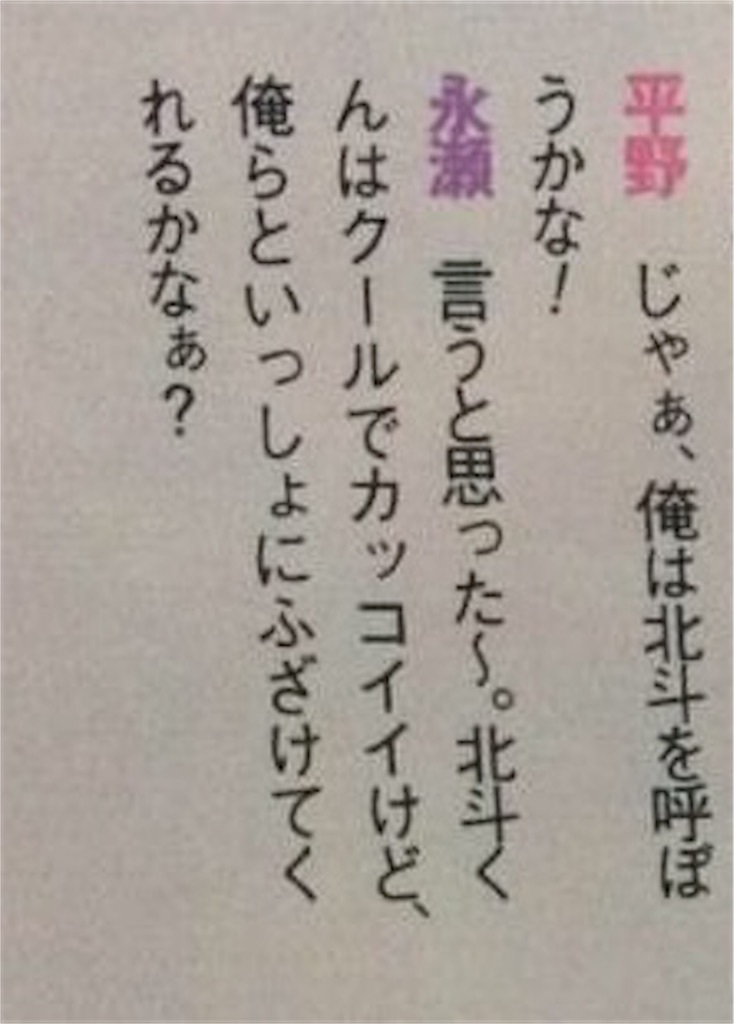 平野　じゃぁ、俺は北斗を呼ぼ
うかな！
永瀬　言うと思った～。北斗く
んはクールでカッコイイけど、
俺らといっしょにふざけてく
れるかなぁ？